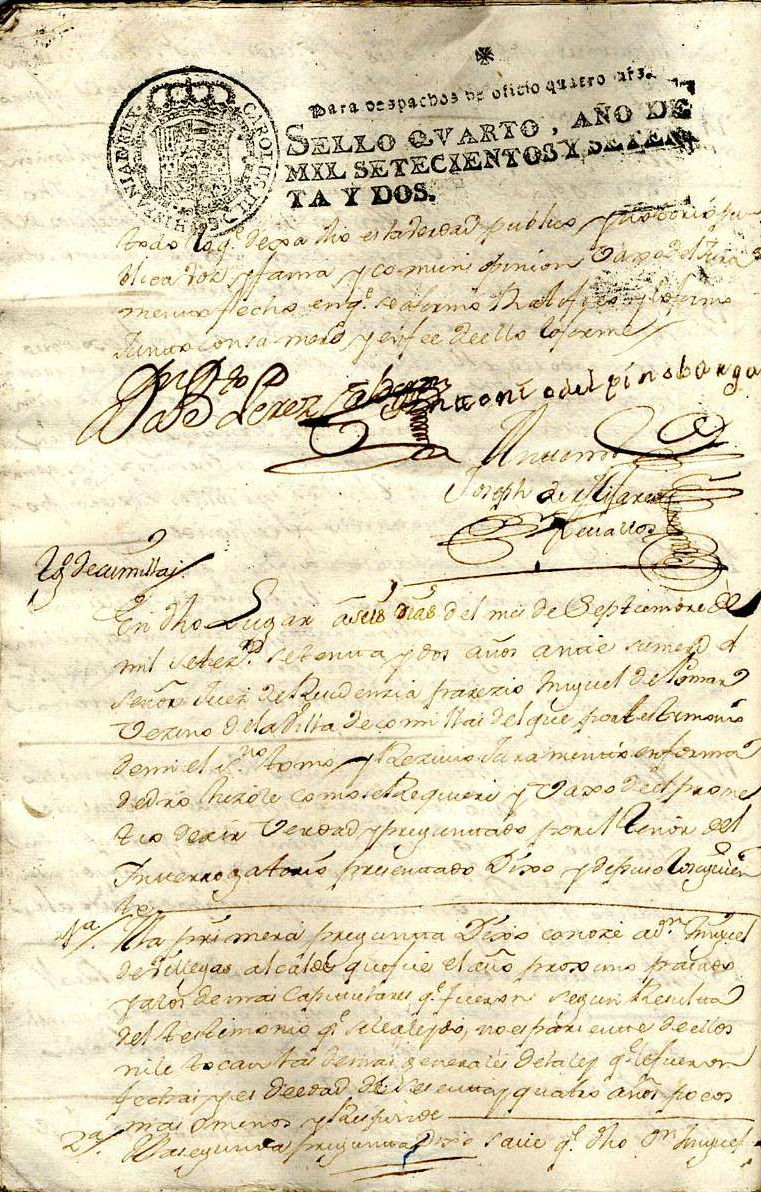 CAROLUS III D G HISPANIAR REX
Para despachos de oficio quatro mrs.
SELLO QVARTO, AÑO DE
MIL SETECIENTOS Y SETEN
TA Y DOS.
todo loq.e dexa dho es la verdad publico y notorio pu
blica voz y fama y comun opinion vaxo del Jura
mento fecho en q.e se afirmo Ratifico y lo firmo
Junto con su merd y en fee de ello lo firme
Perez Antonio del pino barga
Antemi
Joseph de Mijares
Zevallos
tgo de comillas
En dho Lugar a seis dias del mes de Septiembre de
mil setez.s setenta y dos años ante su merd el
señor Juez de Residenzia parezio Miguel de
Vezino de la Villa de Comillas del que por testimonio
de mi el ess.no tomo y Rezivio Juramento en forma
de dro hizole como se Requiere y vaxo de el prome
tio dezir verdad y preguntado por el tenor del
Interrogatorio presentado Dixo y depuso lo siguien
te
1.a A la primera pregunta Dixo conoze a Dn Miguel
de Villegas alcalde que fue el año proximo pasado
y a los demas Capitulares q.e fueron segun Resulta
del testimonio q.e se le a leydo, no es pariente de ellos
ni le tocan las demas generales de la ley q.e le fueron
fechas y es de edad de sesenta y quatro años pocos
mas o menos y Responde
2.a A la segunda pregunta Dixo save q.e dho Dn Miguel